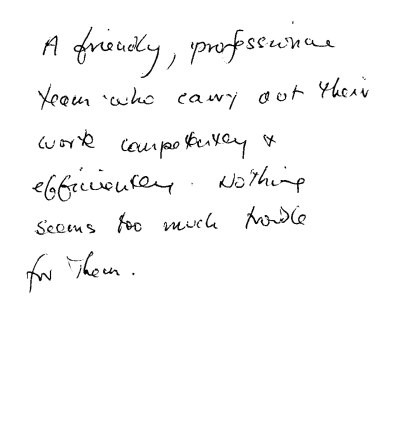 A friendly, professional
team who carry out their
work competently &
efficiently. Nothing
seems too much trouble
for them.